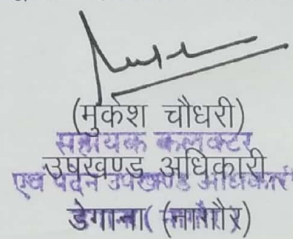 (मुकेश चौधरी)
सहायक कलक्टर
उपखण्ड अधिकारी
एवं पदेन उपखण्ड अधिकारी
डेगाना (नागौर)